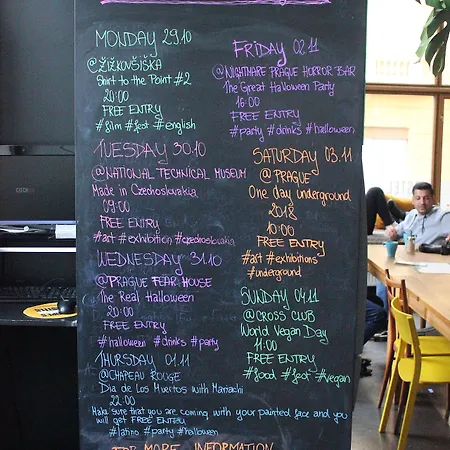 MONDAY 29.10
@ŽIŽKOVŠIŠKA
Shirt to the Point #2
20:00
FREE ENTRY
#film #fest #english
TUESDAY 30.10
@NATIONAL TECHNICAL MUSEUM
Made in Czechoslovakia
09:00
FREE ENTRY
#art #exhibition #czechoslovakia
WEDNESDAY 31.10
@PRAGUE FEAR HOUSE
The Real Halloween
20:00
FREE ENTRY
#halloween #drinks #party
THURSDAY 01.11
@CHAPEAU ROUGE
Dia de Los Muertos with Mariachi
22:00
Make sure that you are coming with your painted face and you
will get FREE ENTRY
#latino #party #halloween
FRIDAY 02.11
@NIGHTMARE PRAGUE HORROR BAR
The Great Halloween Party
16:00
FREE ENTRY
#party #drinks #halloween
SATURDAY 03.11
@PRAGUE
One day underground
2018
10:00
FREE ENTRY
#art #exhibitions
#underground
SUNDAY 04.11
@CROSS CLUB
World Vegan Day
11:00
FREE ENTRY
#food #fest #vegan
FOR MORE INFORMATION